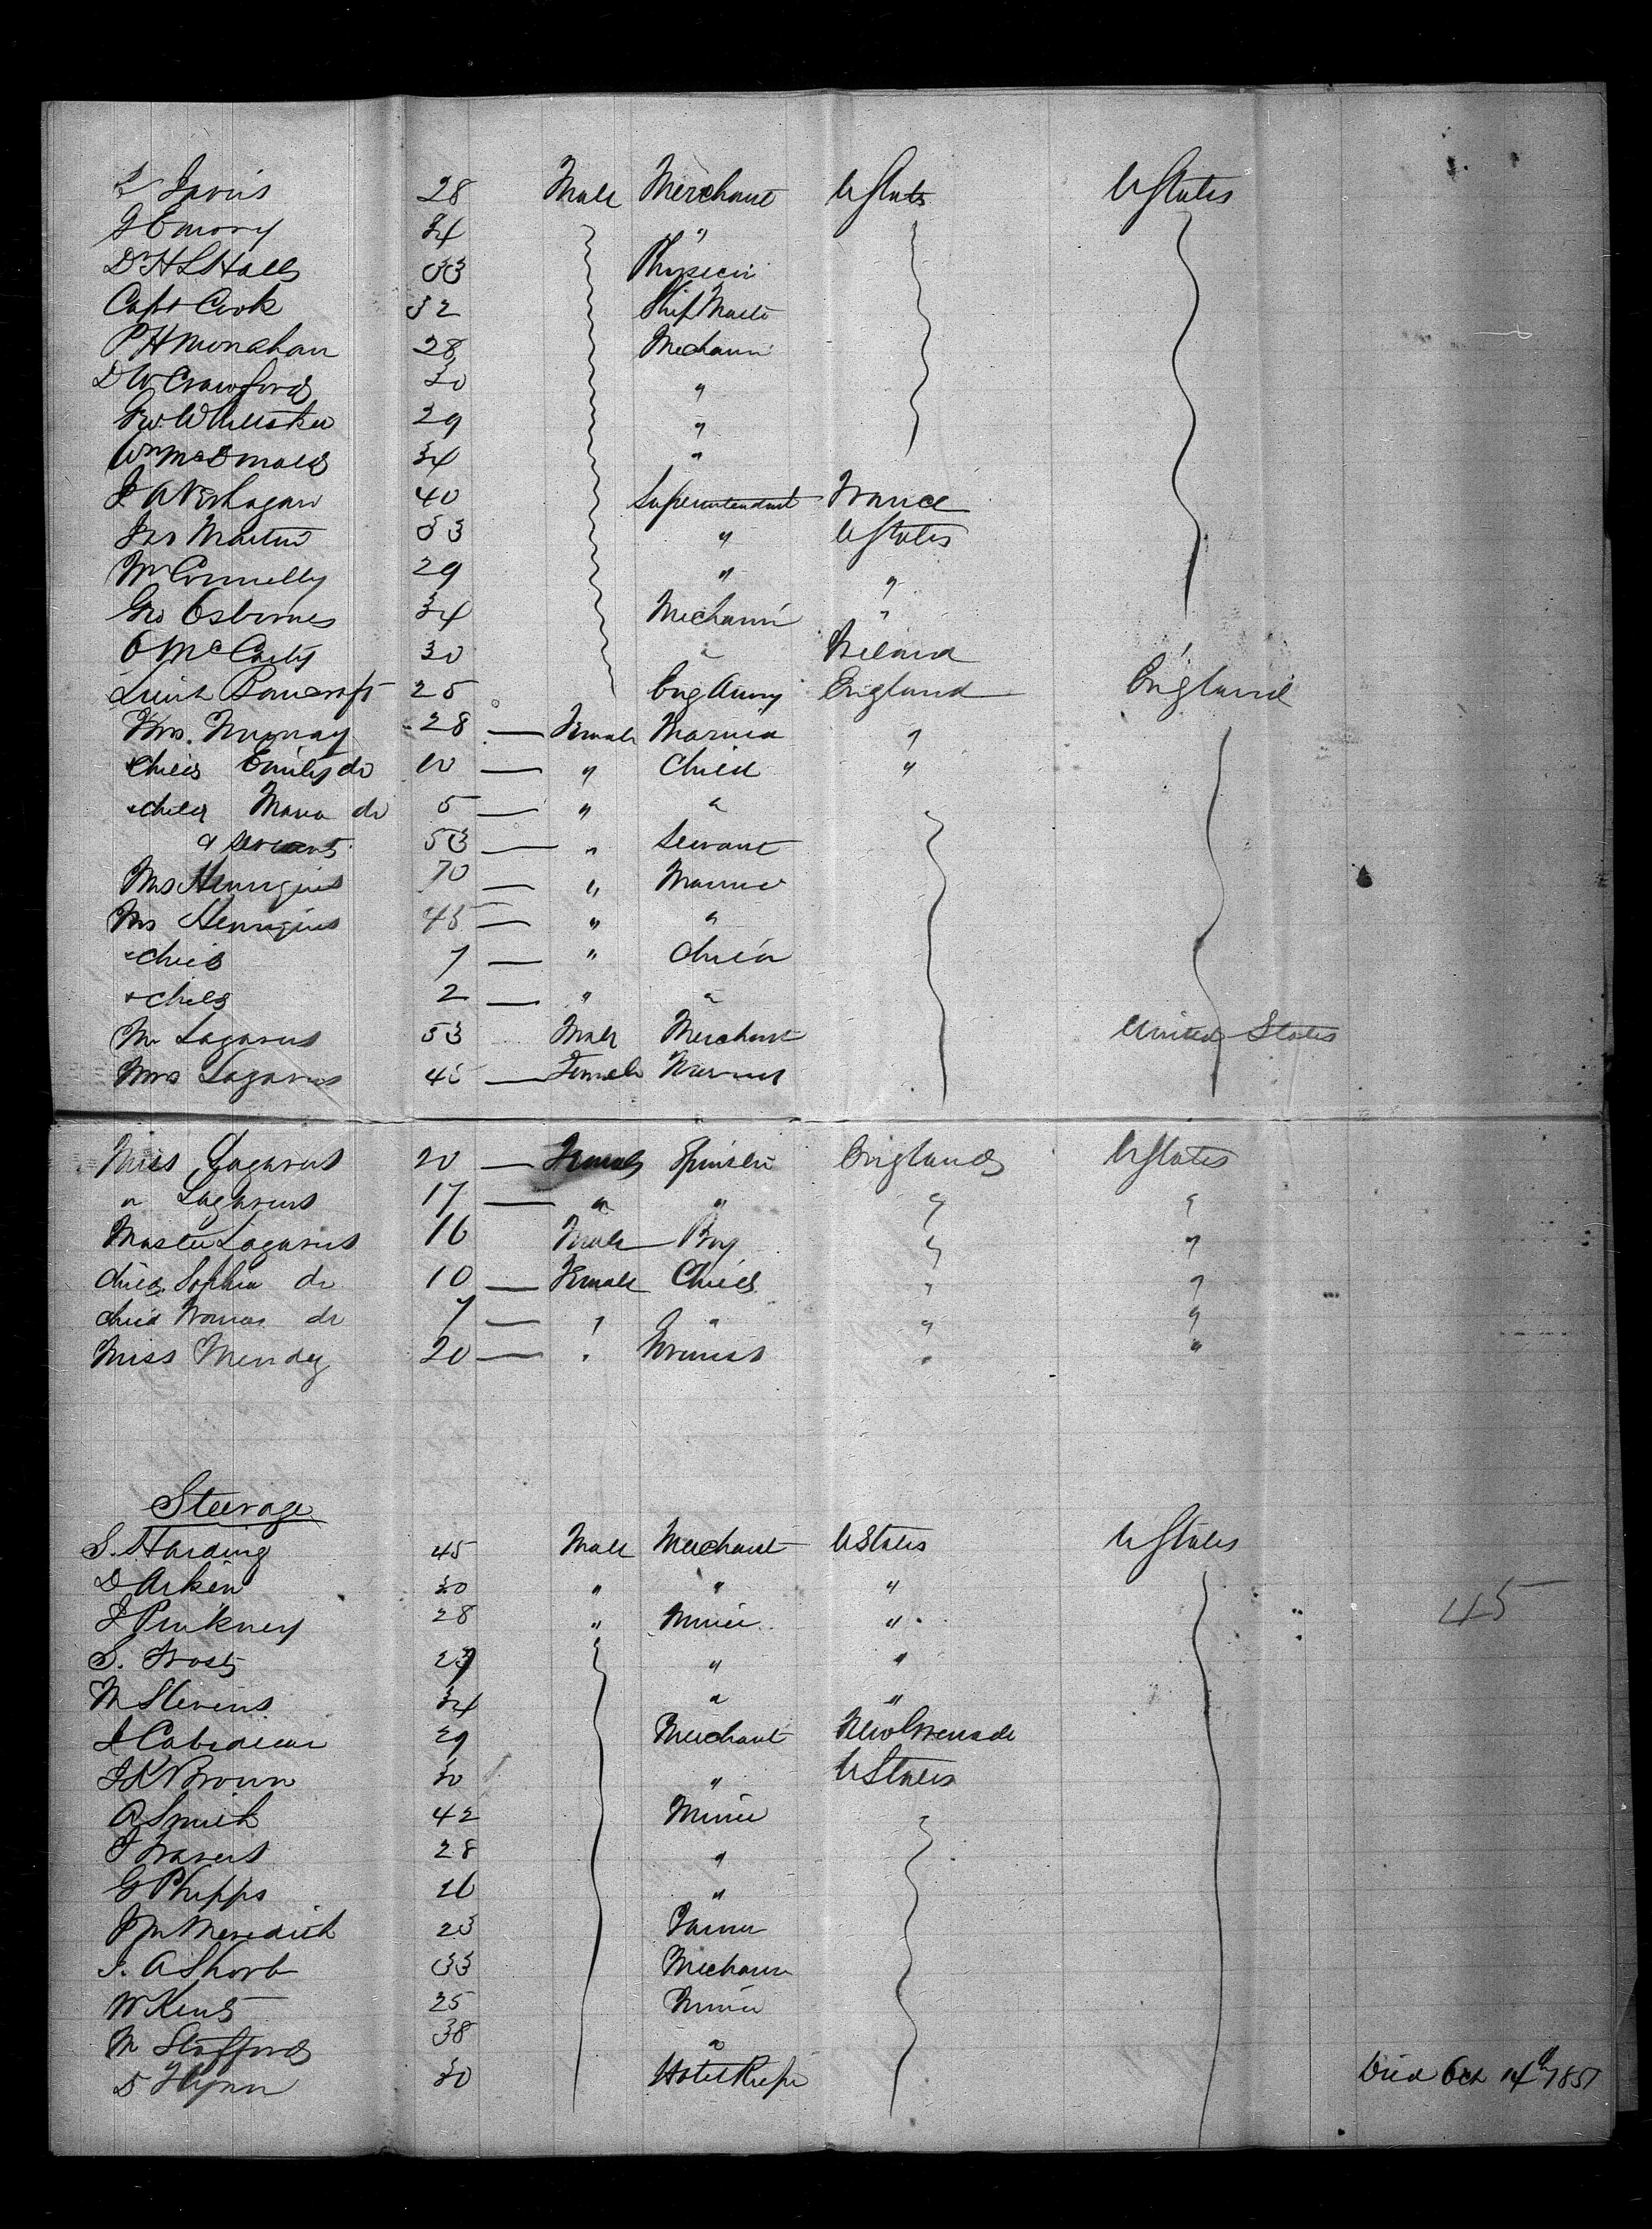 Jarvis 28 Male Merchant UStates UStates
G Emory 34 "
Dr H L Hall 33 Physicin
Capt Cook 32 Ship Maste
P H Monahan 28 Mechanic
D W Crawford 30 "
Geo Whi 29 "
Wm McDonald 34 "
40 Superintendent France
Jas Martin 33 " UStates
Connelly 29 " "
Geo Osbornes 34 Mechanic "
O McCarty 30 " Ireland
Lieut Bancroft 25 Eng Army England England
Mrs. Murray 28 — Female Married "
child Emily do 10 — " Child "
child Maria do 5 — " "
& servant 53 — " Servant
Mrs Henriques 70 — " Married
Mrs Henriques 45 — " "
child 7 — " Child
child 2 — " "
Mr Lazarus 53 Male Merchant United States
Mrs Lazarus 45 — Female Married
Miss Lazarus 20 — Female Spinster England UStates
" Lazarus 17 — " " " "
Master Lazarus 16 Male Boy " "
child Sophia do 10 — Female Child " "
child Frances do 7 — " " " "
Miss Mendez 20 — " " "
Steerage
S. Harding 45 Male Merchant UStates UStates
D Arken 30 " " "
J Pinkney 28 " Miner " 45
S. Frost " "
M Stevens 34 " "
J 29 Merchant New Grenade
J K Brown 30 " UStates
A Smith 42 Miner
J Travers 28 "
G Phipps 26 "
Jn Meredith 23 Farmer
J. A Shorb 33 Mechanic
W Kent 25 Miner
M Stafford 38 "
D Flynn 30 Hotel Keepr Died Oct 14th 1851